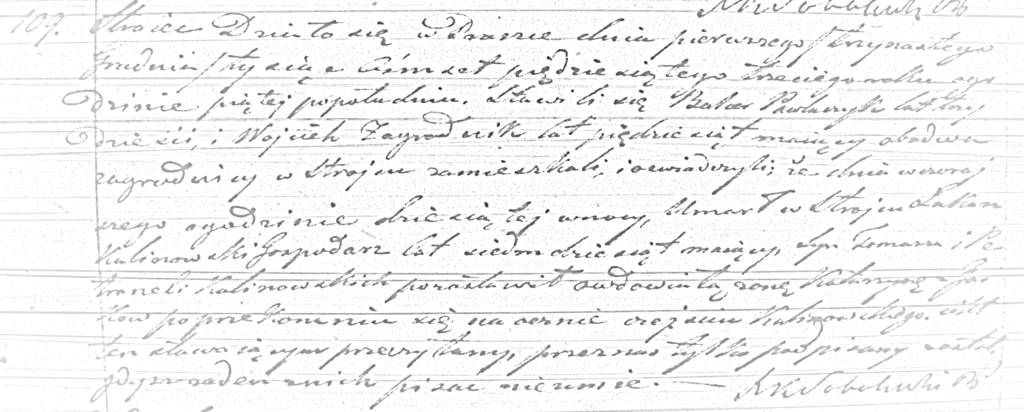 XKSobolewski PB
109. Stroiec Działo się w Pranie dnia pierwszego /trzynastego
Grudnia /tysiąc ośmset pięćdziesiątego trzeciego roku o go
dzinie piątej popołudniu. Stawili się Balcer Pawlaczyk lat trzy
dzieści, i Wojciech Zagrodnik lat pięćdziesiąt mający obadwa
zagrodnicy w Strojcu zamieszkali, i oswiadczyli; że dnia wczoraj
szego ogodzinie dziesiątej wnocy, Umarł w Strojcu
Kalinowski Gospodarz lat siedmdziesiąt mający, syn Tomasza i Pe
troneli Kalinowskich pozostawił owdowiałą żonę Katarzynę z Jas
ków po przekonaniu się naocznie o zejściu Kalinowskiego. Akt
ten stawającym przeczytany, przez nas tylko podpisany został,
gdyż żaden z nich pisać nieumie. —— XKSobolewski PB